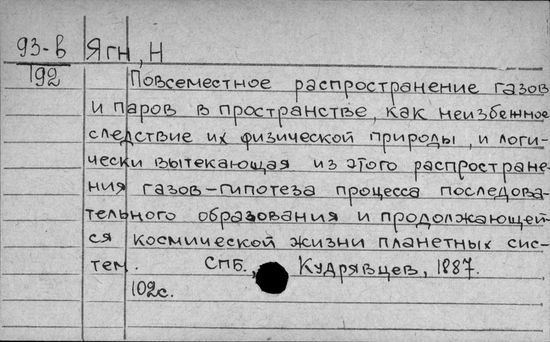 93-в Ягн, Н
192
Повсеместное распространение газов
и паров в пространстве, как неизбежное
следствие их физической природы, и логи-
чески вытекающая из этого распростране-
ния газов-гипотеза процесса последова-
тельного образования и продолжающей-
ся космической жизни планетных сис-
тем. СПБ., Кудрявцев, 1887.
102с.